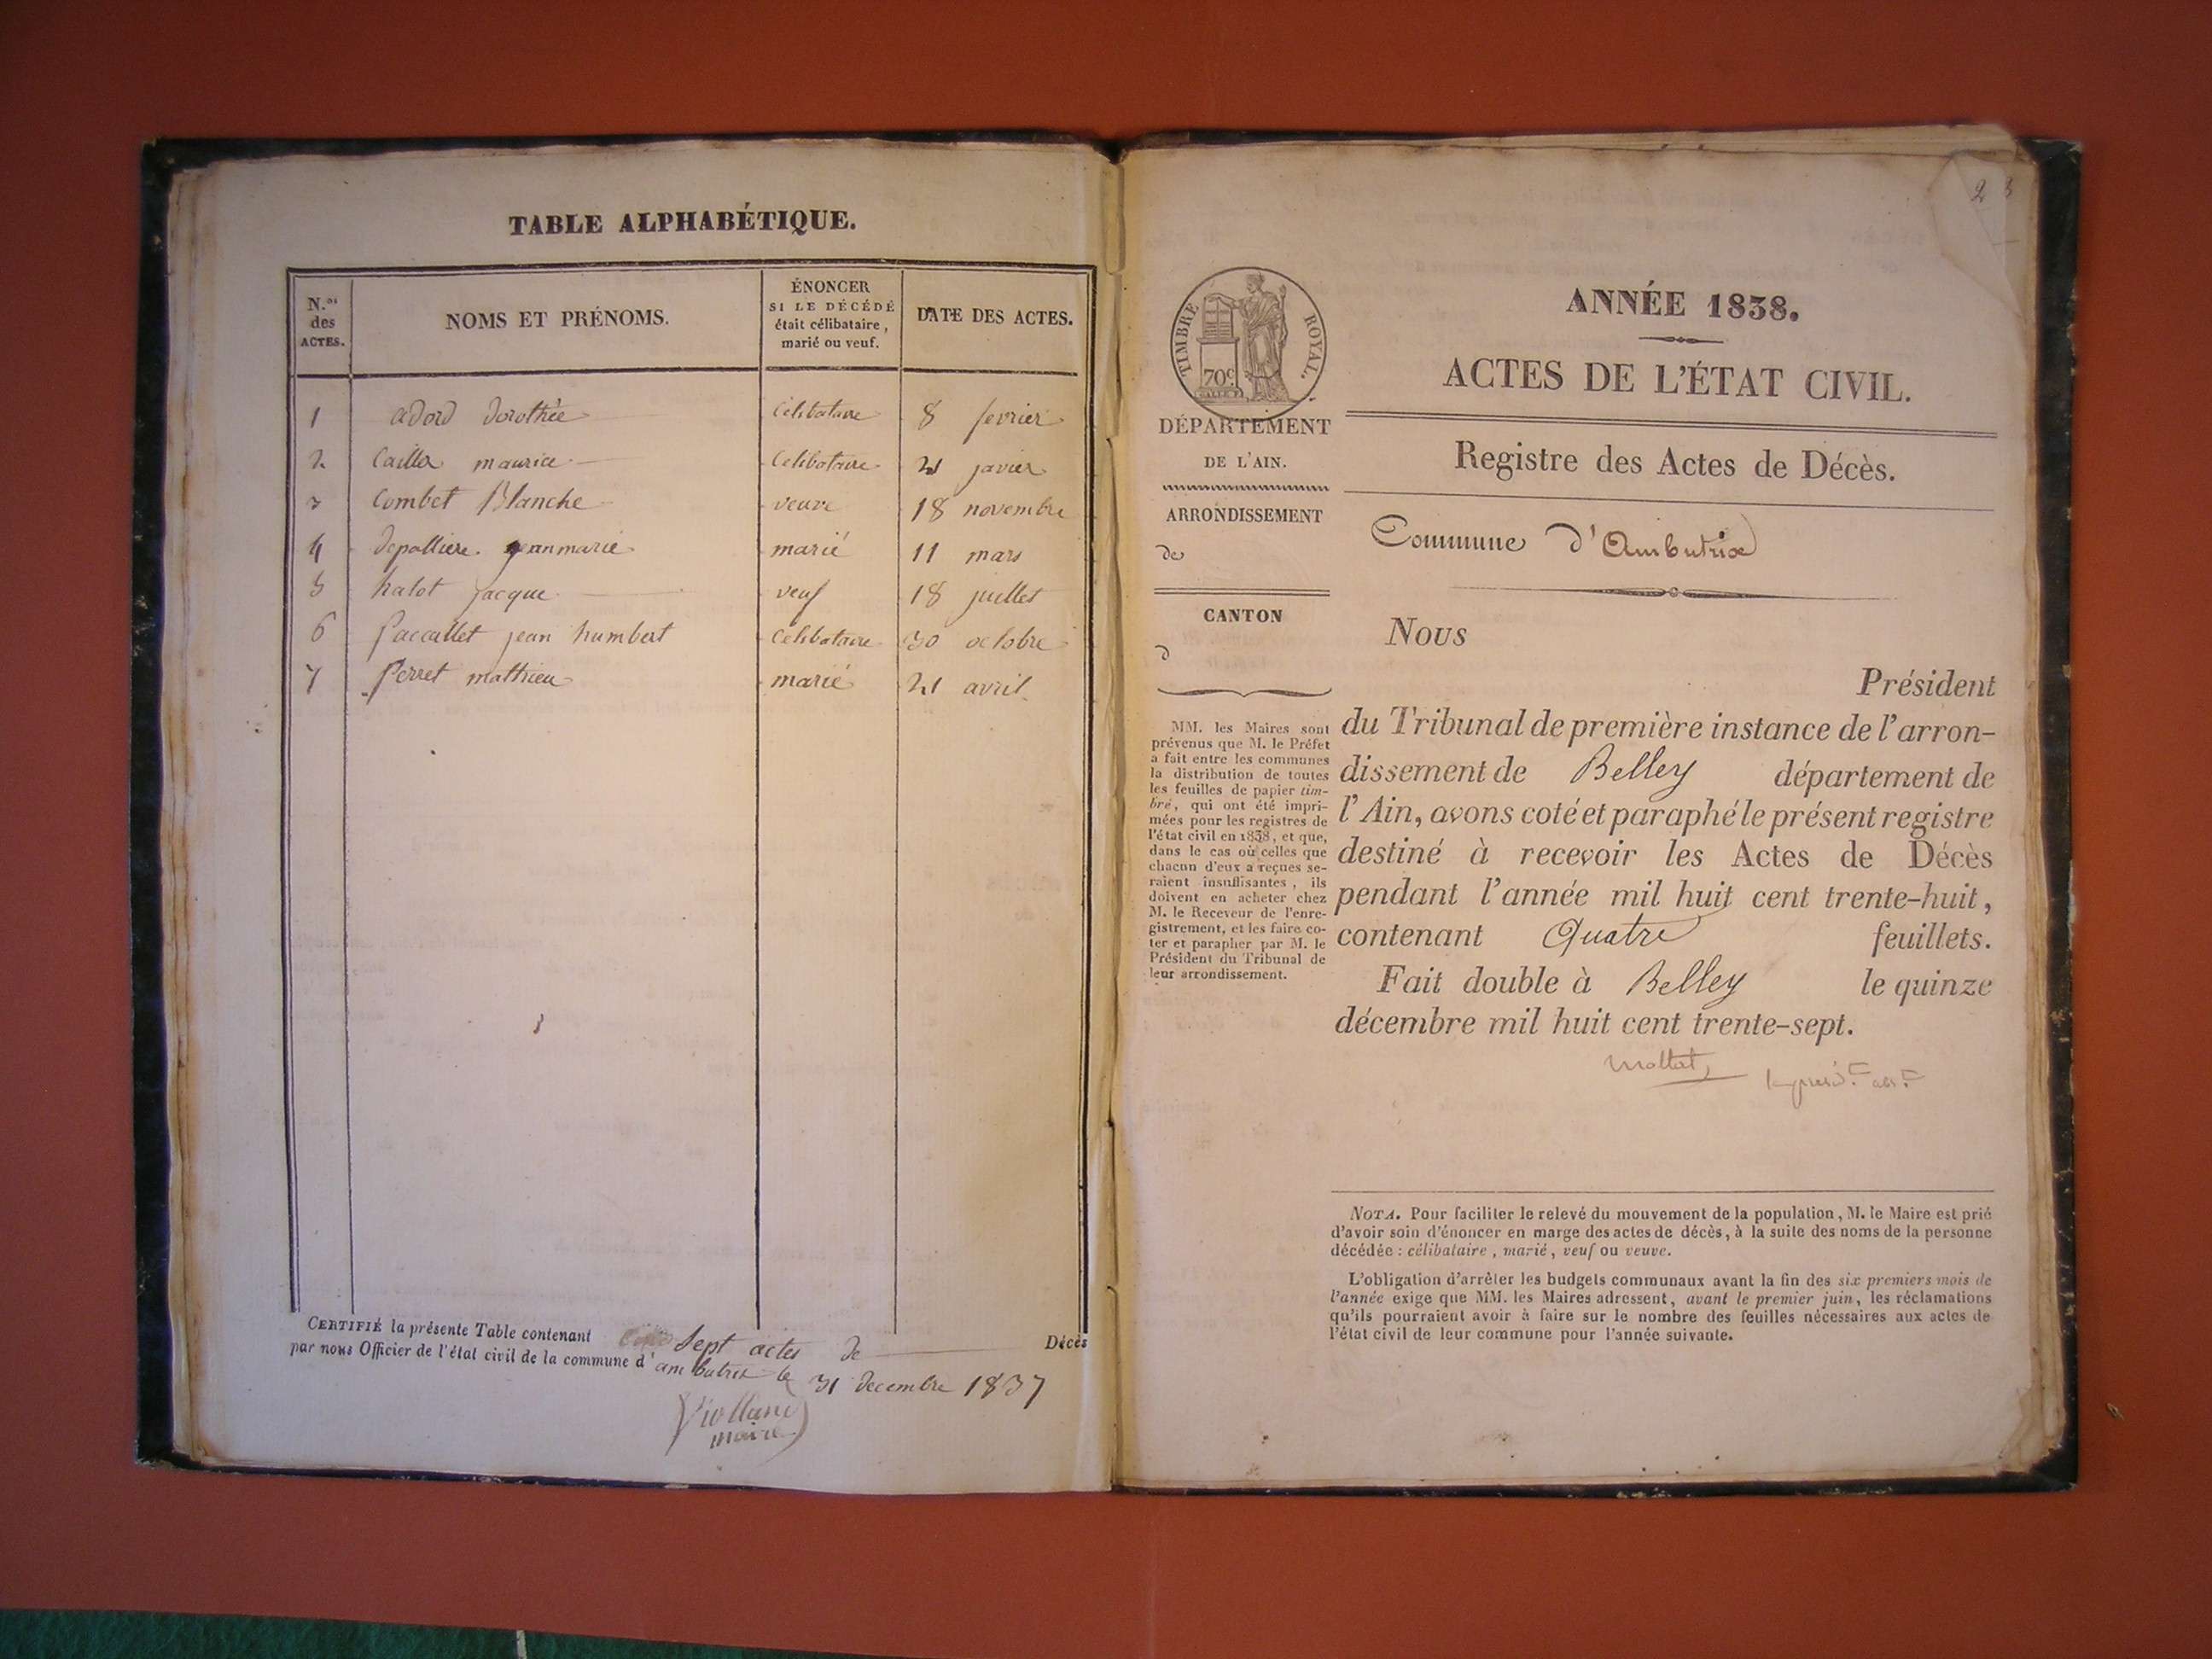 TABLE ALPHABÉTIQUE.
N.os des ACTES.
NOMS ET PRÉNOMS.
ÉNONCER SI LE DÉCÉDÉ était célibataire, marié ou veuf.
DATE DES ACTES.
1 adord dorothée célibataire 8 fevrier
2 Cailla maurice Celibataire 21 javier
3 Combet Blanche veuve 18 novembre
4 depolliere jeanmarie marié 11 mars
5 halot jacque veuf 18 juillet
6 paccallet jean humbert célibataire 30 octobre
7 perret mathieu marié 21 avril
CERTIFIÉ la présente Table contenant Sept actes de Décès
par nous Officier de l'état civil de la commune d'ambutrix le 31 decembre 1837
maire
2 3
TIMBRE ROYAL.
70c
DÉPARTEMENT
DE L'AIN.
ARRONDISSEMENT
de
CANTON
d
MM. les Maires sont
prévenus que M. le Préfet
a fait entre les communes
la distribution de toutes
les feuilles de papier tim-
bré, qui ont été impri-
mées pour les registres de
l'état civil en 1838, et que,
dans le cas où celles que
chacun d'eux a reçues se-
raient insuffisantes, ils
doivent en acheter chez
M. le Receveur de l'enre-
gistrement, et les faire co-
ter et parapher par M. le
Président du Tribunal de
leur arrondissement.
ANNÉE 1838.
ACTES DE L'ÉTAT CIVIL.
Registre des Actes de Décès.
Commune d'Ambutrix
Nous
Président
du Tribunal de première instance de l'arron-
dissement de Belley département de
l'Ain, avons coté et paraphé le présent registre
destiné à recevoir les Actes de Décès
pendant l'année mil huit cent trente-huit,
contenant Quatre feuillets.
Fait double à Belley le quinze
décembre mil huit cent trente-sept.
NOTA. Pour faciliter le relevé du mouvement de la population, M. le Maire est prié
d'avoir soin d'énoncer en marge des actes de décès, à la suite des noms de la personne
décédée : célibataire, marié, veuf ou veuve.
L'obligation d'arrêter les budgets communaux avant la fin des six premiers mois de
l'année exige que MM. les Maires adressent, avant le premier juin, les réclamations
qu'ils pourraient avoir à faire sur le nombre des feuilles nécessaires aux actes de
l'état civil de leur commune pour l'année suivante.